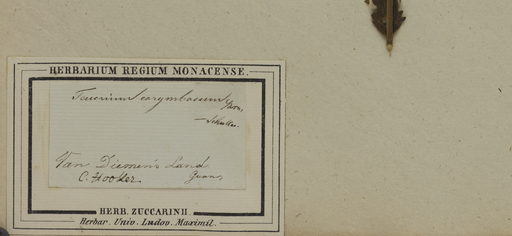 HERBARIUM REGIUM MONACENSE.
Teucrium corymbosum
Van Diemen's Land
C. Hooker. Gunn,
HERB. ZUCCARINII.
Herbar. Univ. Ludov. Maximil.